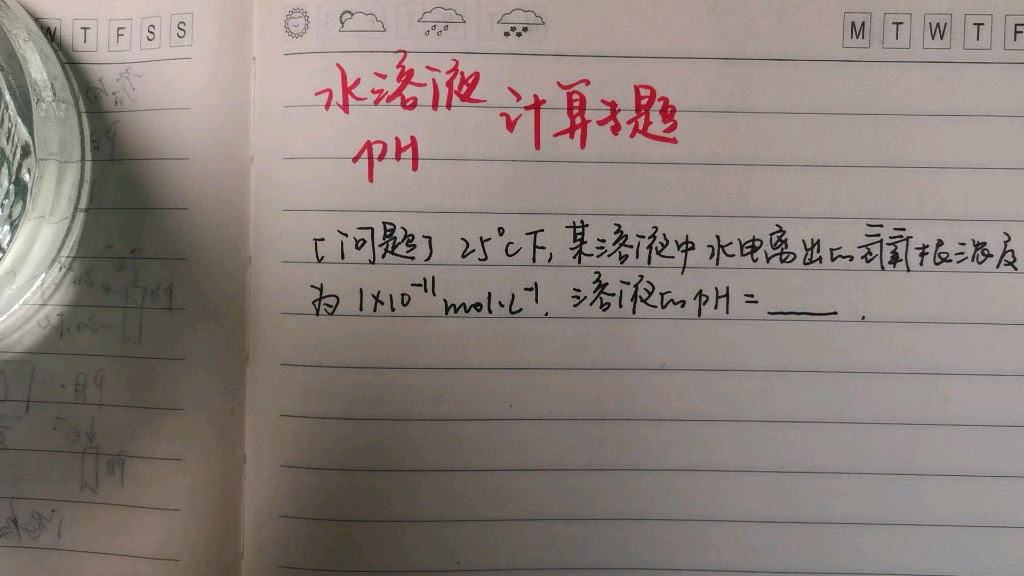 W T F S S
M T W T F
水溶液 计算专题
pH
[问题] 25°C下, 某溶液中水电离出的氢氧根浓度
为 1×10⁻¹¹ mol·L⁻¹. 溶液的pH = ____ .